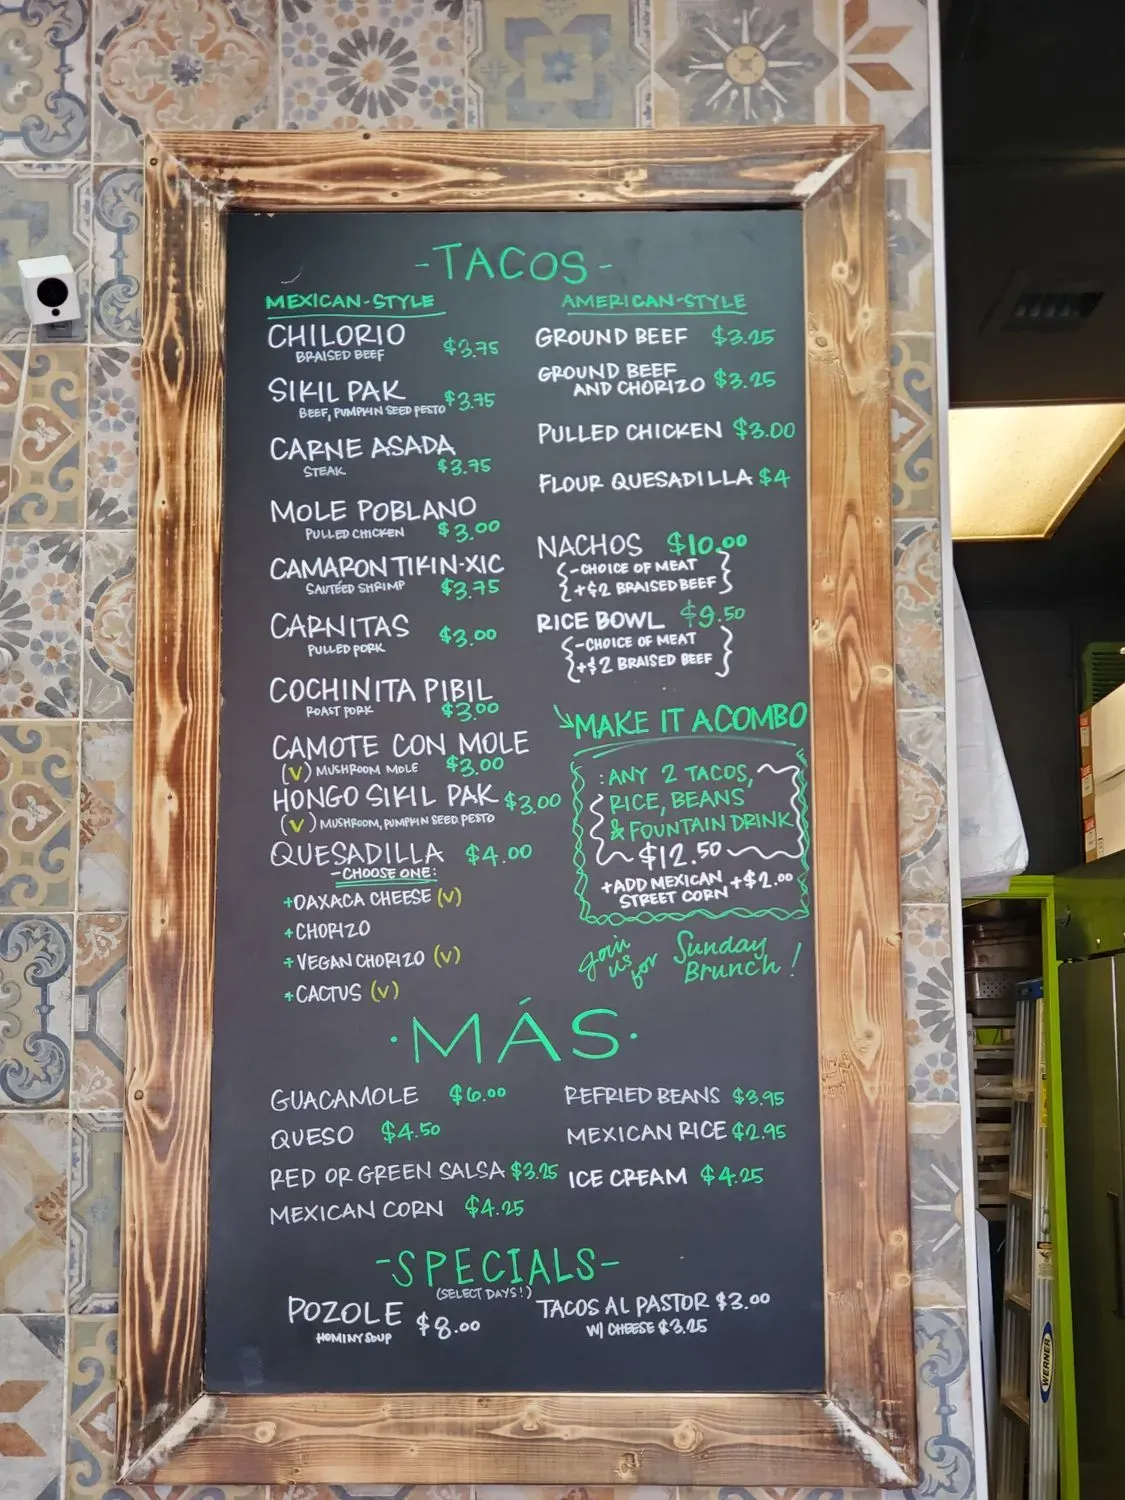 -TACOS-
MEXICAN-STYLE
CHILORIO
BRAISED BEEF $3.75
SIKIL PAK
BEEF, PUMPKIN SEED PESTO $3.75
CARNE ASADA
STEAK $3.75
MOLE POBLANO
PULLED CHICKEN $3.00
CAMARON TIKIN-XIC
SAUTÉED SHRIMP $3.75
CARNITAS
PULLED PORK $3.00
COCHINITA PIBIL
ROAST PORK $3.00
CAMOTE CON MOLE
(V) MUSHROOM MOLE $3.00
HONGO SIKIL PAK $3.00
(V) MUSHROOM, PUMPKIN SEED PESTO
QUESADILLA $4.00
-CHOOSE ONE:
+OAXACA CHEESE (V)
+CHORIZO
+VEGAN CHORIZO (V)
+CACTUS (V)
AMERICAN-STYLE
GROUND BEEF $3.25
GROUND BEEF
AND CHORIZO $3.25
PULLED CHICKEN $3.00
FLOUR QUESADILLA $4
NACHOS $10.00
{-CHOICE OF MEAT
+$2 BRAISED BEEF}
RICE BOWL $9.50
{-CHOICE OF MEAT
+$2 BRAISED BEEF}
MAKE IT A COMBO
:ANY 2 TACOS,
RICE, BEANS
& FOUNTAIN DRINK
$12.50
+ADD MEXICAN
STREET CORN +$2.00
Join us for Sunday
Brunch!
·MÁS·
GUACAMOLE $6.00
QUESO $4.50
RED OR GREEN SALSA $3.25
MEXICAN CORN $4.25
REFRIED BEANS $3.95
MEXICAN RICE $2.95
ICE CREAM $4.25
-SPECIALS-
(SELECT DAYS!)
POZOLE $8.00
HOMINY SOUP
TACOS AL PASTOR $3.00
W/ CHEESE $3.25
WERNER